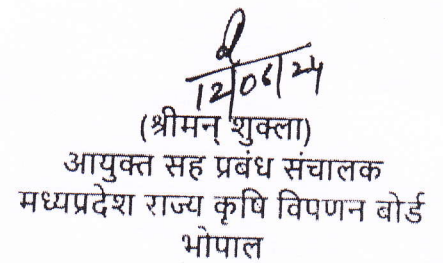 12/06/24
(श्रीमन् शुक्ला)
आयुक्त सह प्रबंध संचालक
मध्यप्रदेश राज्य कृषि विपणन बोर्ड
भोपाल